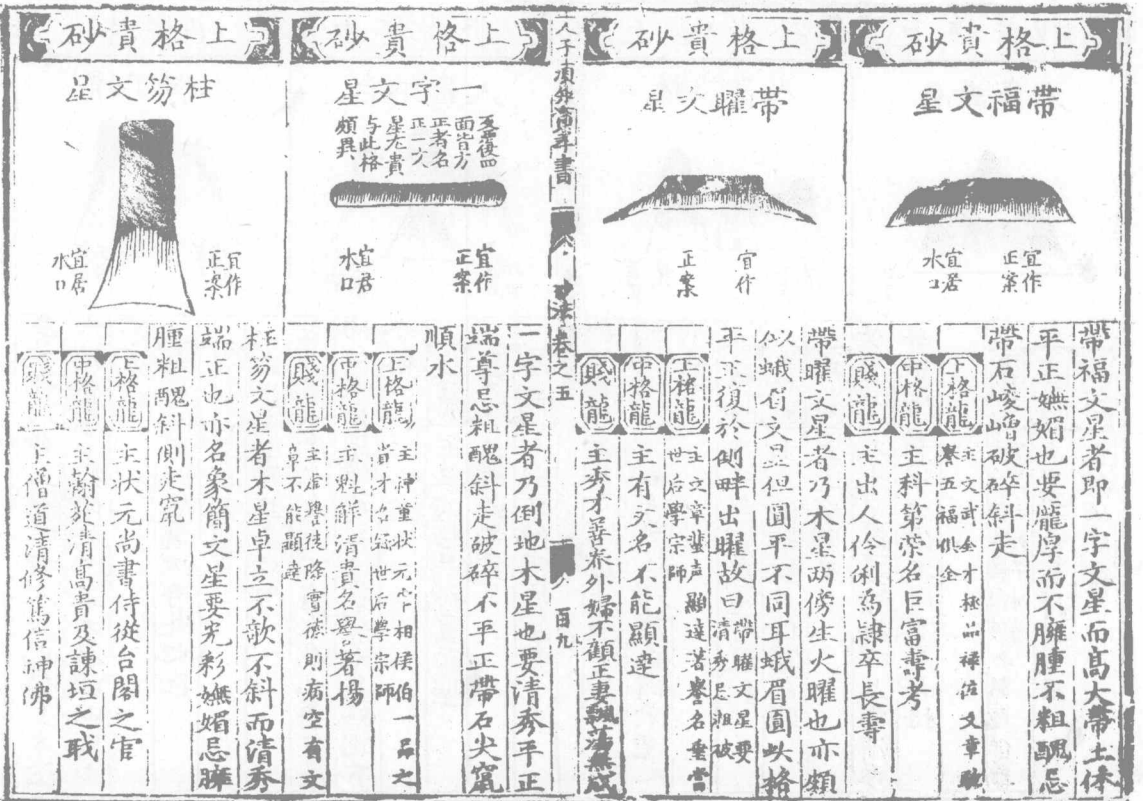 上格貴砂
帶福文星
宜作
正案
宜居
水口
帶福文星者即一字文星而高大帶土体
平正嫵媚也要龎厚而不臃腫不粗醜忌
帶石崚嶒破碎斜走
上格龍
主文武全才極品祿位文章
譽五福俱全
中格龍
主科第榮名巨富壽考
賤龍
主出人伶俐為隷卒長壽
上格貴砂
帶曜文星
宜作
正案
帶曜文星者乃木星兩傍生火曜也亦頗
似蛾眉文星但圓平不同耳蛾眉圓此格
平正復於側畔出曜故曰帶曜文星要
清秀忌粗破
上格龍
主文章蜚声顯達著譽名重當
世后學宗師
中格龍
主有文名不能顯達
賤龍
主秀才善养外婦不顧正妻飄蕩無成
人子須知資孝書
砂法卷之五
百九
上格貴砂
一字文星
面皆方
正者名
正一文
星尤貴
与此格
頗異
宜作
正案
宜居
水口
一字文星者乃倒地木星也要清秀平正
端尊忌粗醜斜走破碎不平正帶石尖竄
順水
上格龍
主神童狀元宰相侯伯一品之
貴才名盖世后學宗師
中格龍
主魁解清貴名譽著楊
賤龍
主虛譽徒隆實德則病空有文
章不能顯達
上格貴砂
柱笏文星
宜作
正案
宜居
水口
柱笏文星者木星卓立不欹不斜而清秀
端正也亦名象簡文星要光彩嫵媚忌臃
腫粗醜斜側走竄
上格龍
主狀元尚書侍從台閣之官
中格龍
主翰苑清高貴及諫垣之职
賤龍
主僧道清修篤信神佛